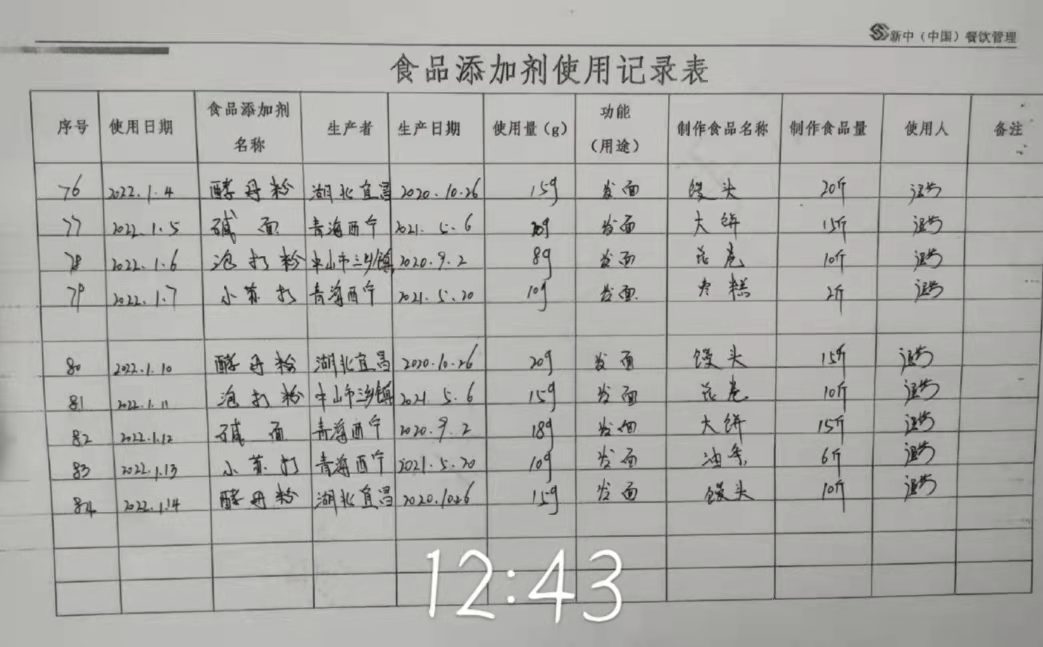 新中（中国）餐饮管理
食品添加剂使用记录表
序号 使用日期 食品添加剂名称 生产者 生产日期 使用量(g) 功能（用途） 制作食品名称 制作食品量 使用人 备注
76 2022.1.4 酵母粉 湖北宜昌 2020.10.26 15g 发面 馒头 20斤
77 2022.1.5 碱面 青海西宁 2021.5.6 发面 大饼 15斤
78 2022.1.6 泡打粉 中山市三乡镇 2020.9.2 8g 发面 花卷 10斤
79 2022.1.7 小苏打 青海西宁 2021.5.20 10g 发面 枣糕 2斤
80 2022.1.10 酵母粉 湖北宜昌 2020.10.26 20g 发面 馒头 15斤
81 2022.1.11 泡打粉 中山市沙镇 2021.5.6 15g 发面 花卷 10斤
82 2022.1.12 碱面 青海西宁 2020.9.2 18g 发面 大饼 15斤
83 2022.1.13 小苏打 青海西宁 2021.5.20 10g 发面 油条 6斤
84 2022.1.14 酵母粉 湖北宜昌 2020.1026 15g 发面 馒头 10斤
12:43